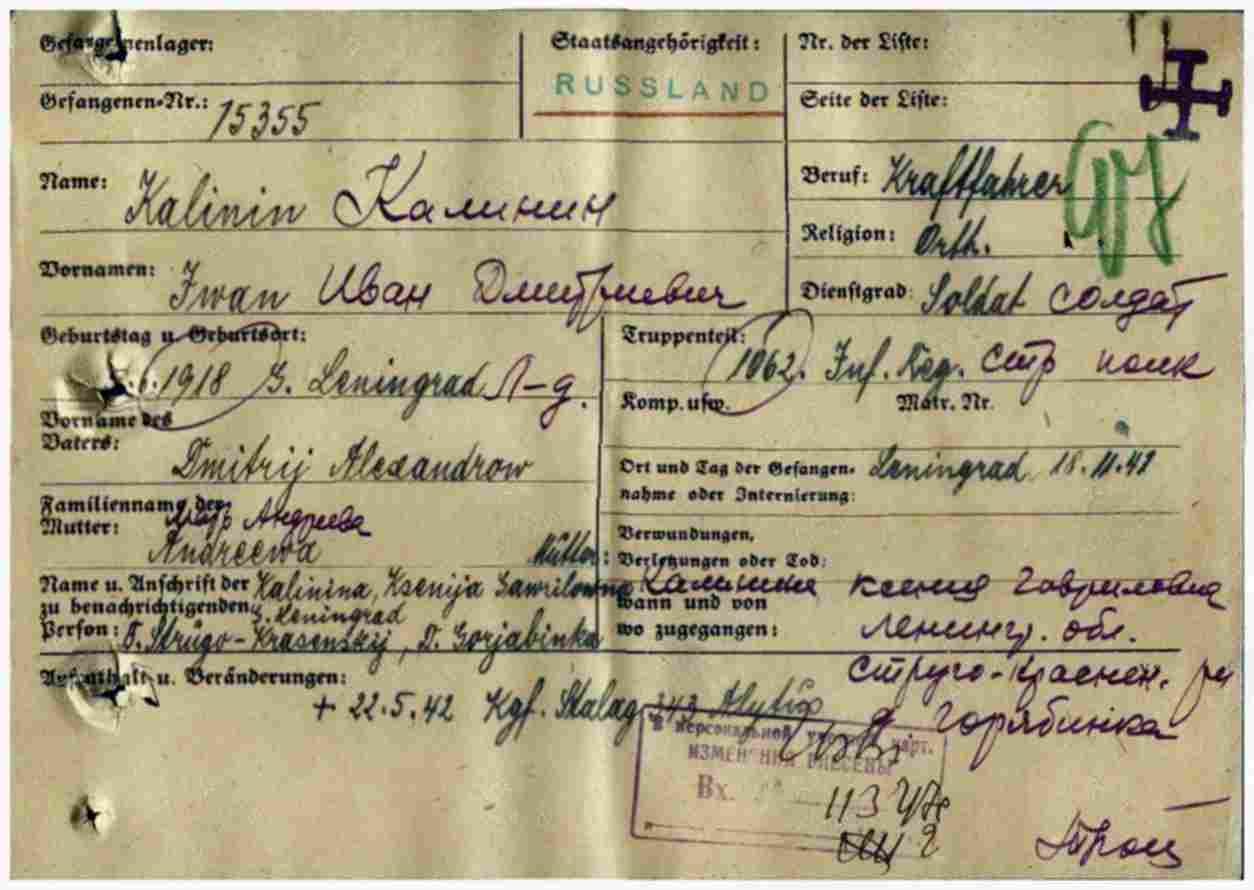 Gefangenenlager:
Staatsangehörigkeit:
RUSSLAND
Nr. der Liste:
Gefangenen-Nr.: 15355
Seite der Liste:
Name: Kalinin Калинин
Beruf: Kraftfahrer
Religion: Orth.
Vornamen: Iwan Иван Дмитриевич
Dienstgrad: Soldat солдат
Geburtstag u Geburtsort:
1918 G. Leningrad Л-д.
Truppenteil:
1062. Inf. Reg. стр полк
Komp. usw. Matr. Nr.
Vorname des
Vaters: Dmitrij Alexandrow
Ort und Tag der Gefangen- Leningrad 18.11.41
nahme oder Internierung:
Familienname der
Mutter: Андреева
Andreewa
Mutter:
Verwundungen,
Verletzungen oder Tod:
Name u. Anschrift der Kalinina, Ksenija Gawrilowna
zu benachrichtigenden G. Leningrad
Person: Strugo-Krasenskij, D. Gorjabinka
Калинина Ксения Гавриловна
wann und von
wo zugegangen: Ленингр. обл.
Струго-Краснен.
д Горябинка
Aufenthalt u. Veränderungen:
+ 22.5.42 Kgf. Stalag
В персональной карт.
ИЗМЕНЕНИЯ ВНЕСЕНЫ
Вх.
113